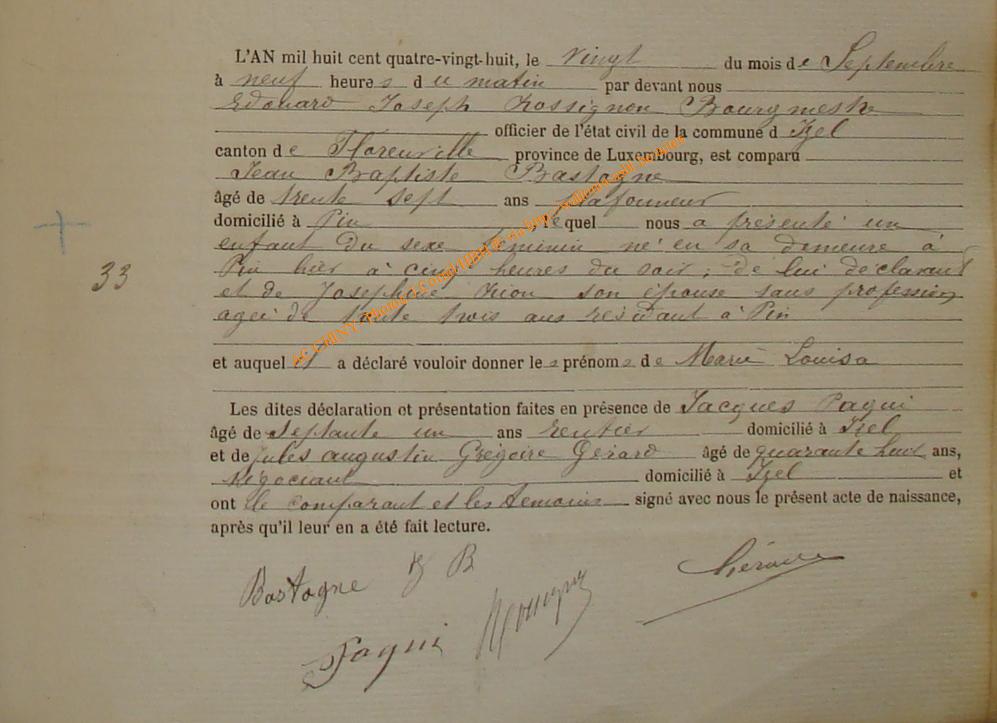 L'AN mil huit cent quatre-vingt-huit, le vingt du mois de Septembre
à neuf heures du matin par devant nous
Edouard Joseph Rossignon Bourgmestre
officier de l'état civil de la commune d Izel
canton de Florenville province de Luxembourg, est comparu
Jean Baptiste Bastogne
âgé de trente sept ans plafonneur
domicilié à Pin lequel nous a présenté un
enfant du sexe feminin né en sa demeure à
Pin hier à cinq heures du soir, de lui déclarant
33
et de Josephine Rion son épouse sans profession
agée de trente trois ans résidant à Pin
et auquel il a déclaré vouloir donner les prénoms de Marie Louisa
Les dites déclaration et présentation faites en présence de Jacques Paqui
âgé de septante un ans rentier domicilié à Izel
et de Jules augustin Grégoire Gérard âgé de quarante huit ans,
Négociant domicilié à Izel et
ont le comparant et les témoins signé avec nous le présent acte de naissance,
après qu'il leur en a été fait lecture.
Bastogne J B
Gérard
Paqui